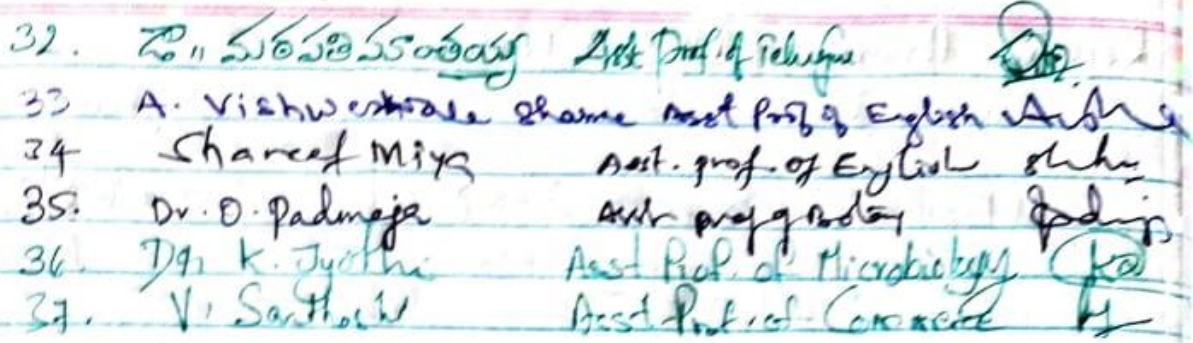 32. డా॥ మఠపతి వీరుతయ్య Asst Prof. of Telugu
33 A. Vishweshwara Sharma Asst Prof of English
34 Shareef Miya Asst. prof. of English
35. Dr. O. Padmaja Asst prof of Botany
36. Dr. K. Jyothi Asst Prof. of Microbiology
37. V. Santhosh Asst Prof. of Commerce